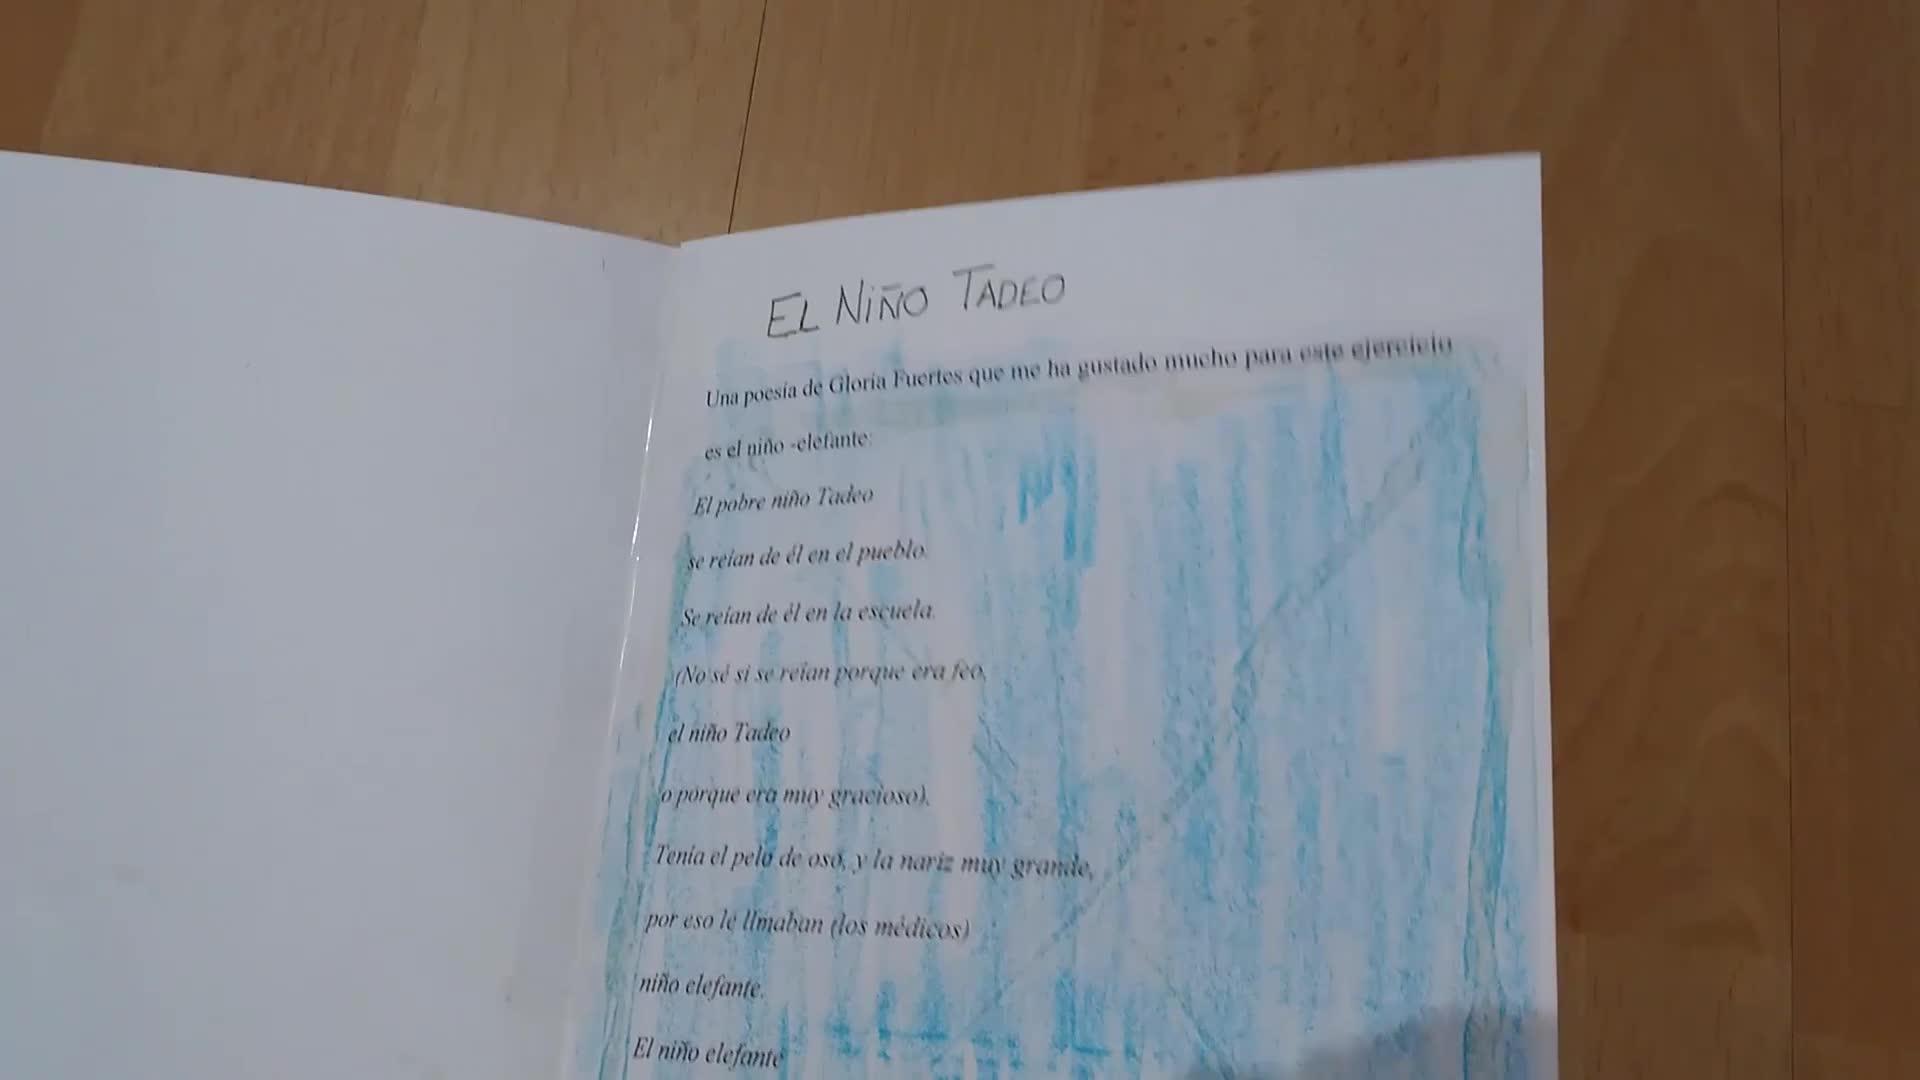 EL NIÑO TADEO
Una poesía de Gloria Fuertes que me ha gustado mucho para este ejercicio
es el niño -elefante:
El pobre niño Tadeo
se reían de él en el pueblo.
Se reían de él en la escuela.
(No sé si se reían porque era feo,
el niño Tadeo
o porque era muy gracioso).
Tenía el pelo de oso, y la nariz muy grande,
por eso le llmaban (los médicos)
niño elefante.
El niño elefante